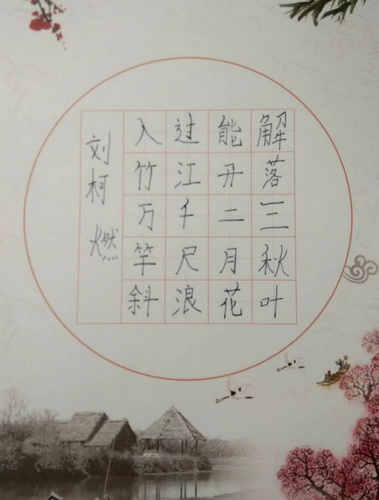 解落三秋叶
能开二月花
过江千尺浪
入竹万竿斜
刘柯燃